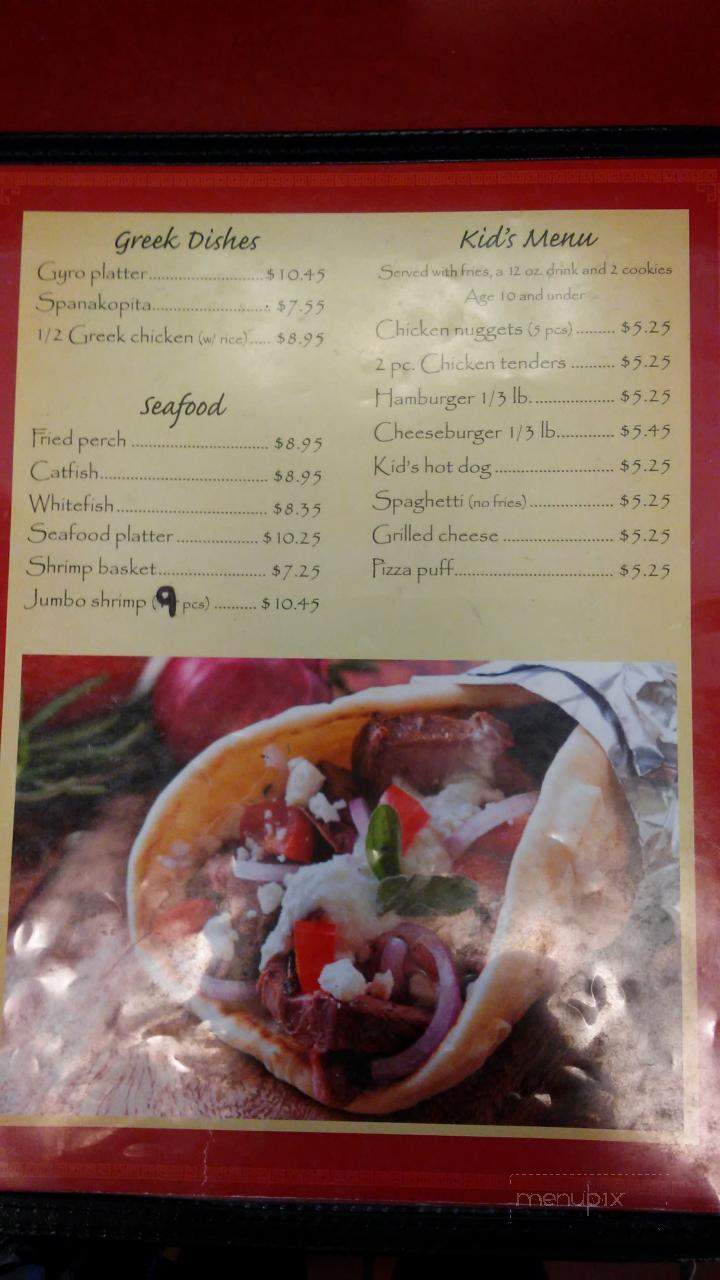 Greek Dishes
Gyro platter............................$10.45
Spanakopita............................. $7.55
1/2 Greek chicken (w/ rice)..... $8.95
Seafood
Fried perch ................................. $8.95
Catfish......................................... $8.95
Whitefish..................................... $8.35
Seafood platter .................... $10.25
Shrimp basket.......................... $7.25
Jumbo shrimp (9 pcs) .......... $10.45
Kid's Menu
Served with fries, a 12 oz. drink and 2 cookies
Age 10 and under
Chicken nuggets (5 pcs) ......... $5.25
2 pc. Chicken tenders .......... $5.25
Hamburger 1/3 lb..................... $5.25
Cheeseburger 1/3 lb.............. $5.45
Kid's hot dog ............................. $5.25
Spaghetti (no fries) ..................... $5.25
Grilled cheese ........................... $5.25
Pizza puff....................................... $5.25
menupix